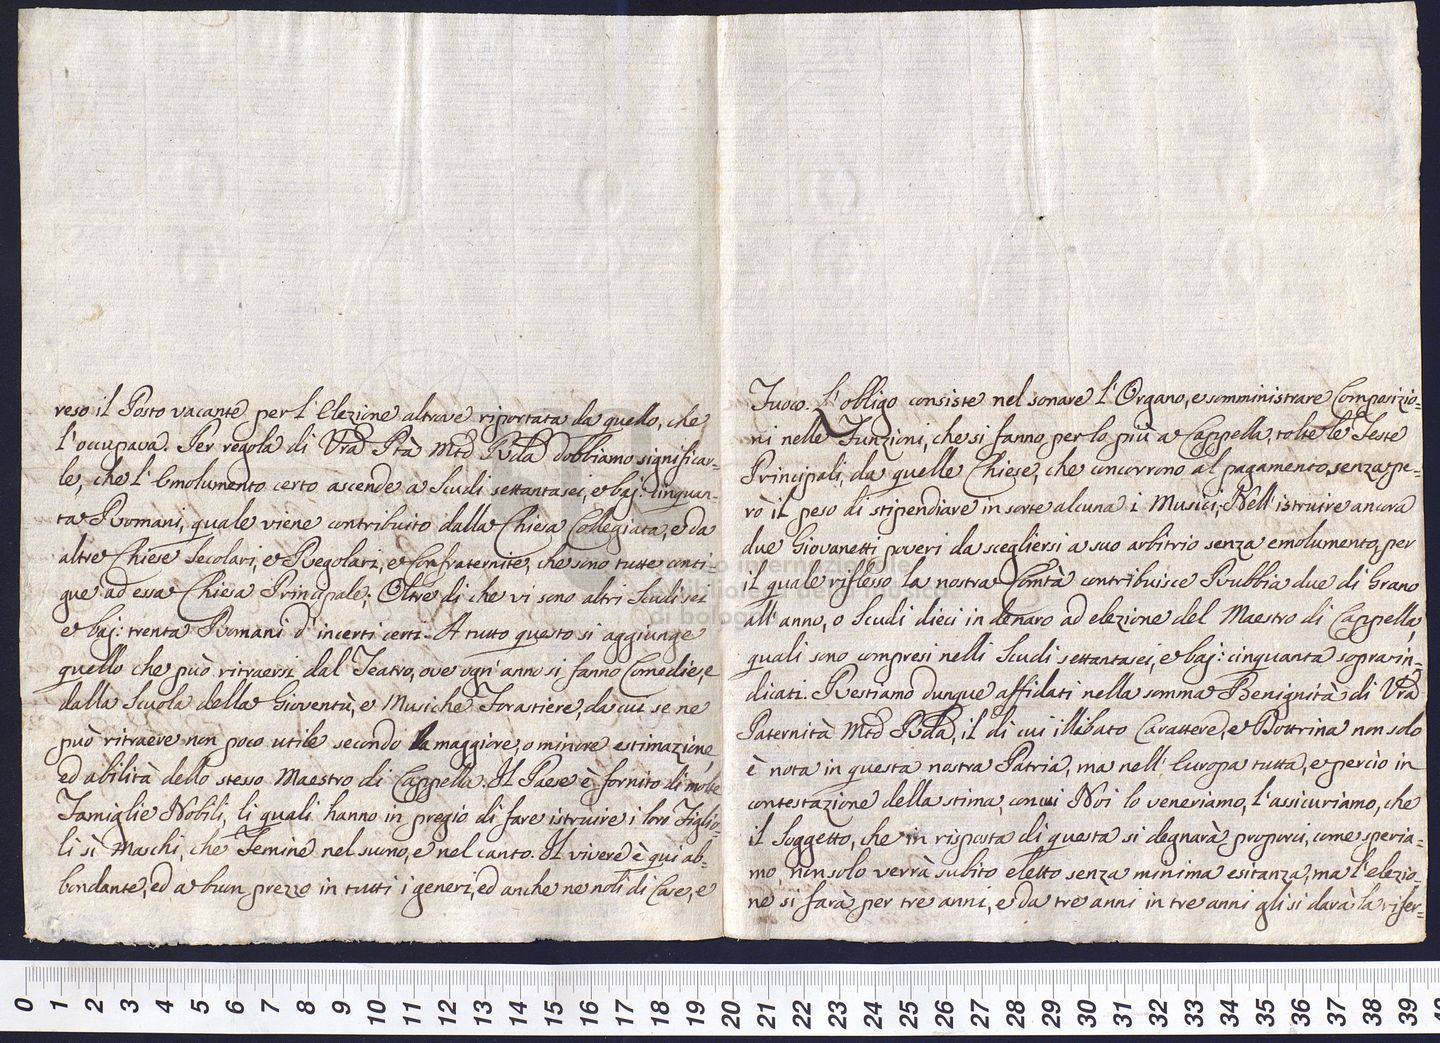 reso il Posto vacante per l' Elezione altrove riportata da quello, che
l' occupava. Per regola di Vrã Ptà Mtõ Rvdã dobbiamo significar=
le, che l' Emolumento certo ascende a Scudi settantasei, e baj: cinquan=
ta Romani, quale viene contribuito dalla Chiesa Collegiata, e da
altre Chiese Secolari, e Regolari, e Confraternite, che sono tutte conti
gue ad essa Chiesa Principale; Oltre di che vi sono altri Scudi sei
e baj: trenta Romani d' incerti certi. A tutto questo si aggiunge
quello che può ritraersi dal Teatro, ove ogn' anno si fanno Comedie, e
dalla Scuola della Gioventù, e Musiche Forastiere, da cui se ne
può ritraere non poco utile secondo la maggiore, o minore estimazione,
ed abilità dello stesso Maestro di Cappella. Il Paese è fornito di molte
Famiglie Nobili, li quali hanno in pregio di fare istruire i loro Figlio=
li sì Maschi, che Femine nel suono, e nel canto. Il vivere è qui ab=
bondante, ed a buon prezzo in tutti i generi, ed anche ne noli di Case, e
Fuoco. L' obligo consiste nel sonare l' Organo, e somministrare Composizio=
ni nelle Funzioni, che si fanno per lo più a Cappella, tolte le Feste
Principali, da quelle Chiese, che concorrono al pagamento, senza pe=
rò il peso di stipendiare in sorte alcuna i Musici; Nell' istruire ancora
due Giovanetti poveri da scegliersi a suo arbitrio senza emolumento, per
il quale riflesso la nostra Comtà contribuisce Rubbia due di Grano
all' anno, o Scudi dieci in denaro ad elezione del Maestro di Cappella,
quali sono compresi nelli Scudi settantasei, e baj: cinquanta sopra in=
dicati. Restiamo dunque affidati nella somma Benignità di Vrã
Paternità Mtõ Rvdã, il di cui illibato Carattere, e Dottrina non solo
è nota in questa nostra Patria, ma nell' Europa tutta, e perciò in
contestazione della stima, con cui Noi lo veneriamo, l' assicuriamo, che
il Soggetto, che in risposta di questa si degnarà proporci, come speria=
mo, non solo verrà subito eletto senza minima esitanza, ma l' elezio=
ne si farà per tre anni, e da tre anni in tre anni gli si darà la rifer=
0 1 2 3 4 5 6 7 8 9 10 11 12 13 14 15 16 17 18 19 20 21 22 23 24 25 26 27 28 29 30 31 32 33 34 35 36 37 38 39 40